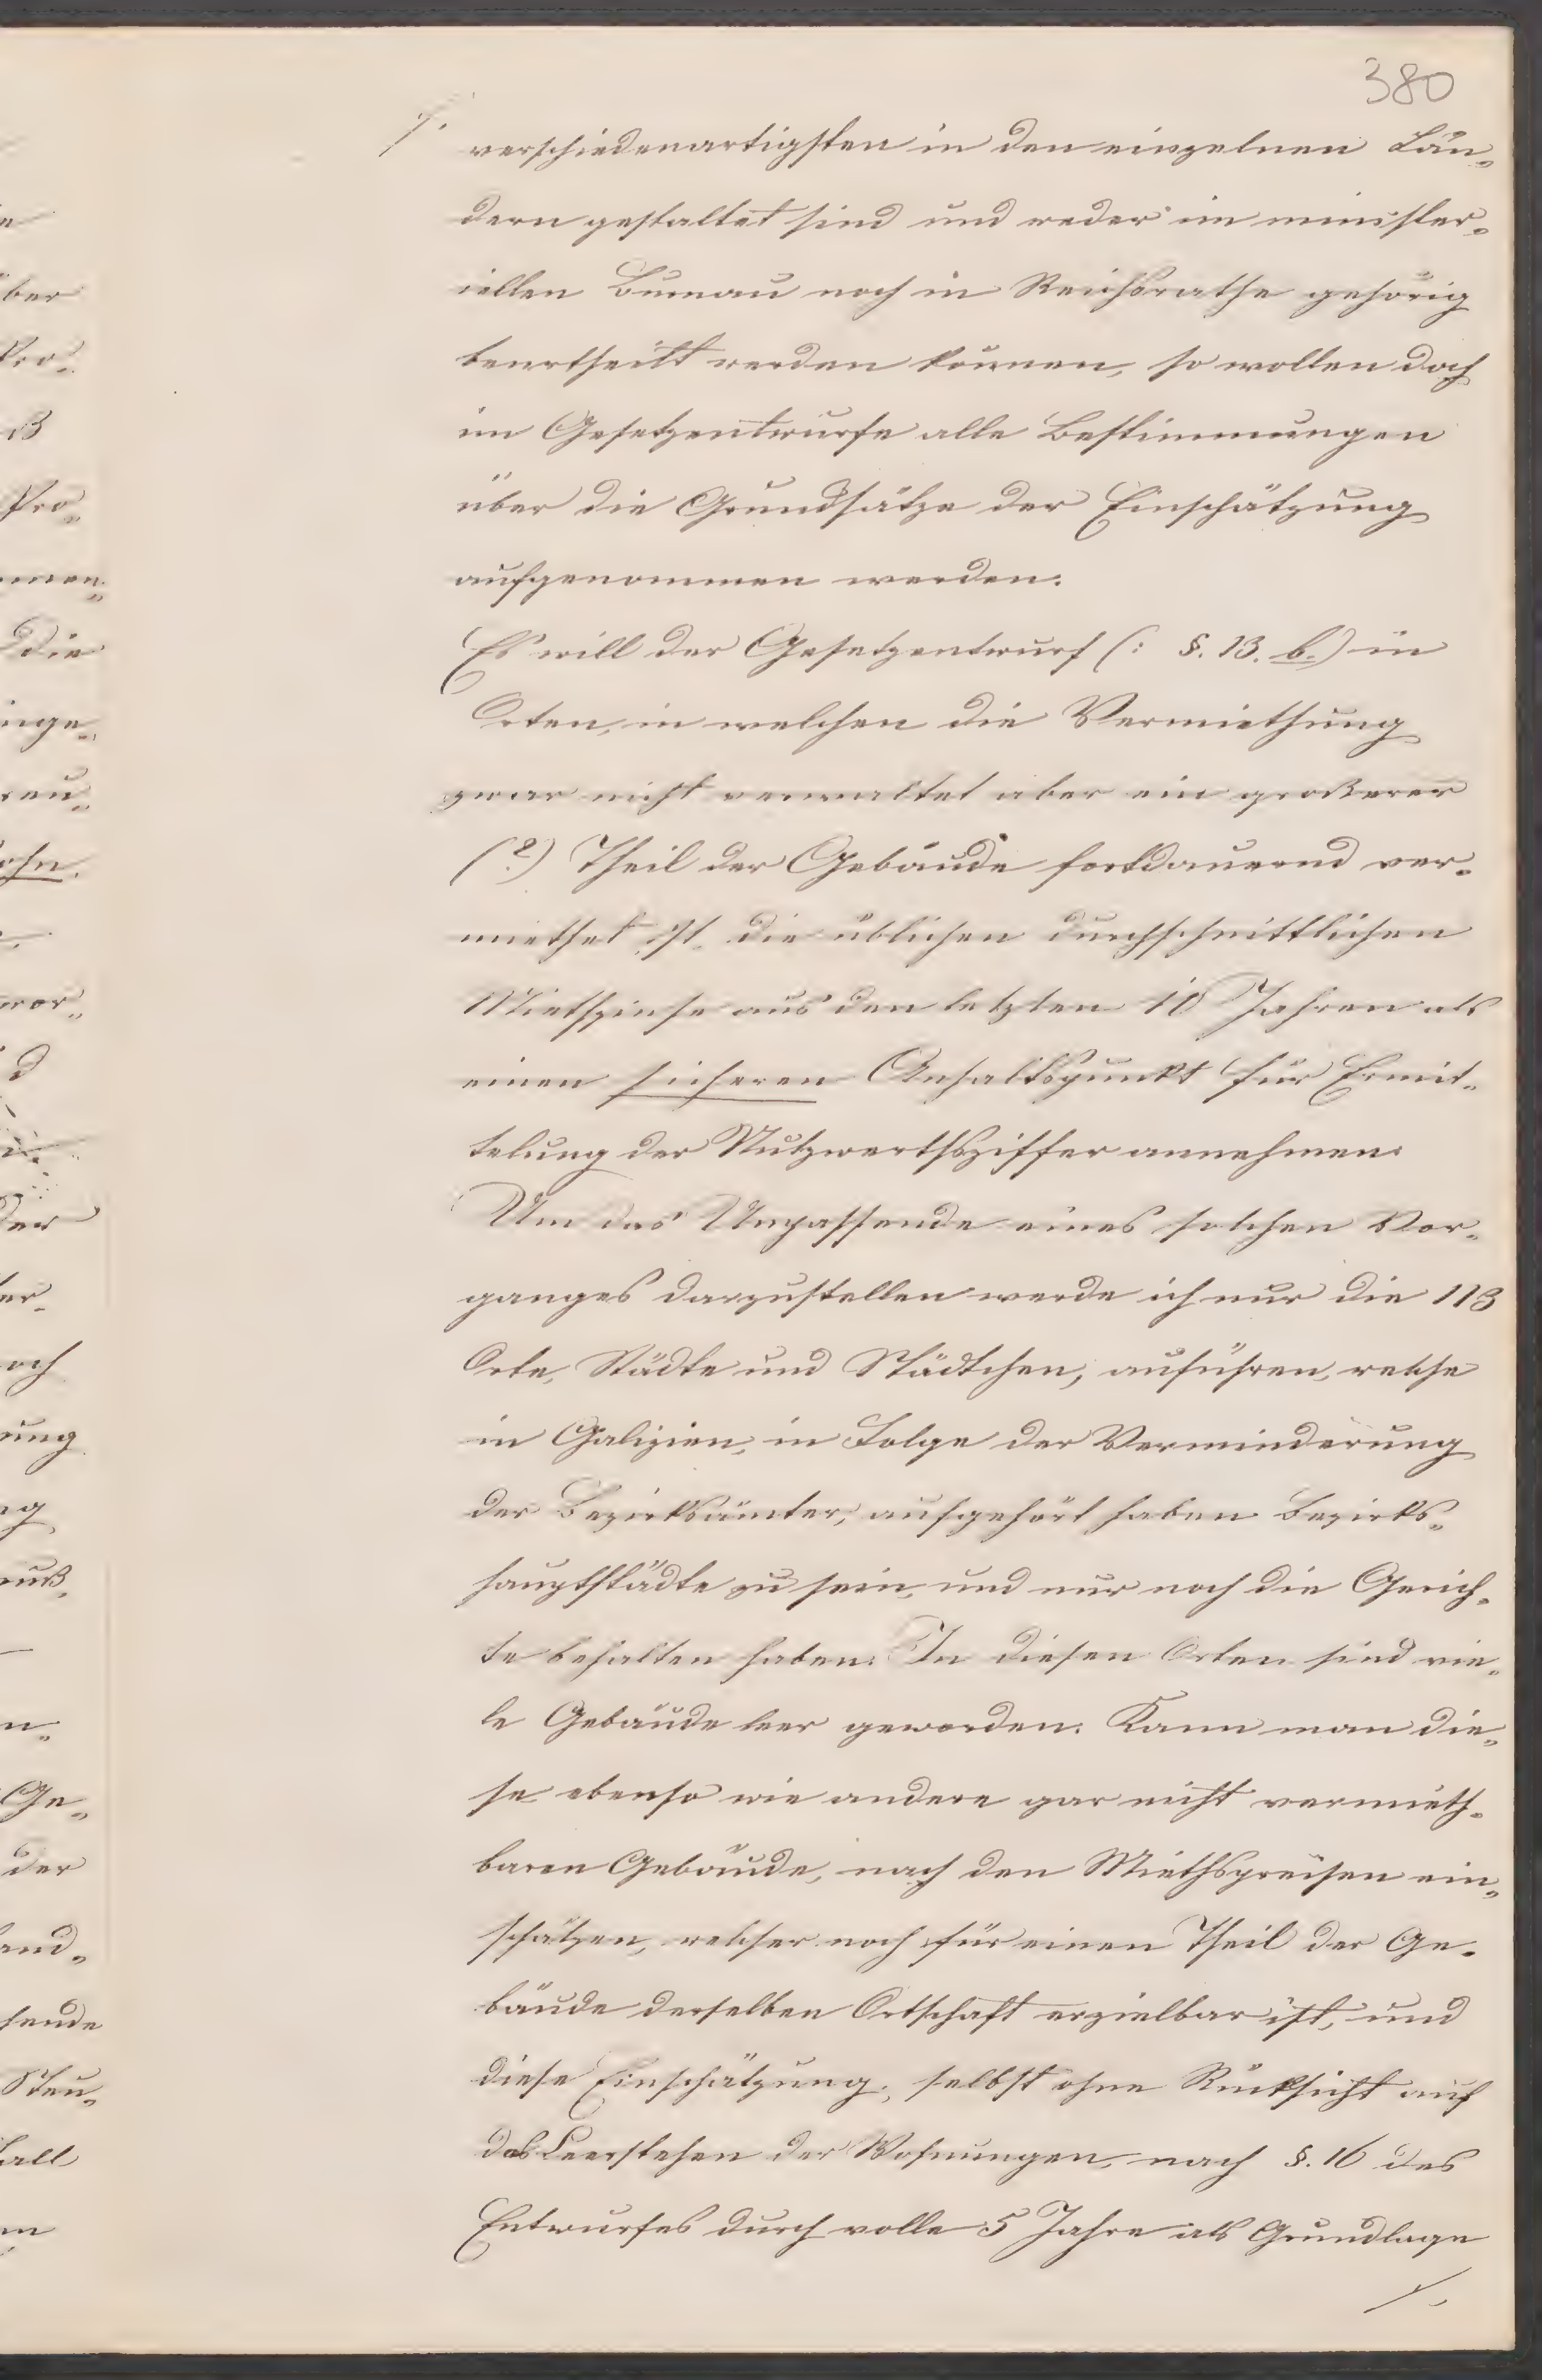 380
verschiedenartigsten in den einzelnen Län-
dern gestaltet sind und weder im minister-
iellen Bureau noch in Reichsrathe gehörig
beurtheilt werden können, so wollen doch
im Gesetzentwurfe alle Bestimmungen
über die Grundsätze der Einschätzung
aufgenommen werden.
Es will der Gesetzentwurf (: §. 13. b.) in
Orten, in welchen die Vermiethung
zwar nicht vorwaltet aber ein größerer
(?) Theil der Gebäude fortdauernd ver-
miethet ist, die üblichen durchschnittlichen
Miethzinse aus den letzten 10 Jahren als
einen sicheren Anhaltspunkt für Ermit-
telung der Nutzwerthsziffer annehmen.
Um das Unpassende eines solchen Vor-
ganges darzustellen werde ich nur die 113
Orte, Städte und Städtchen, anführen, welche
in Galizien, in Folge der Verminderung
der Bezirksämter, aufgehört haben Bezirks-
hauptstädte zu sein, und nur noch die Gerich-
te behalten haben. In diesen Orten sind vie-
le Gebäude leer geworden. Kann man die-
se ebenso wie andere gar nicht vermieth-
baren Gebäude, nach den Miethspreisen ein-
schätzen, welcher noch für einen Theil der Ge-
bäude derselben Ortschaft erzielbar ist, und
diese Einschätzung, selbst ohne Rücksicht auf
das Leerstehen der Wohnungen, nach §. 16 des
Entwurfes durch volle 5 Jahre als Grundlage